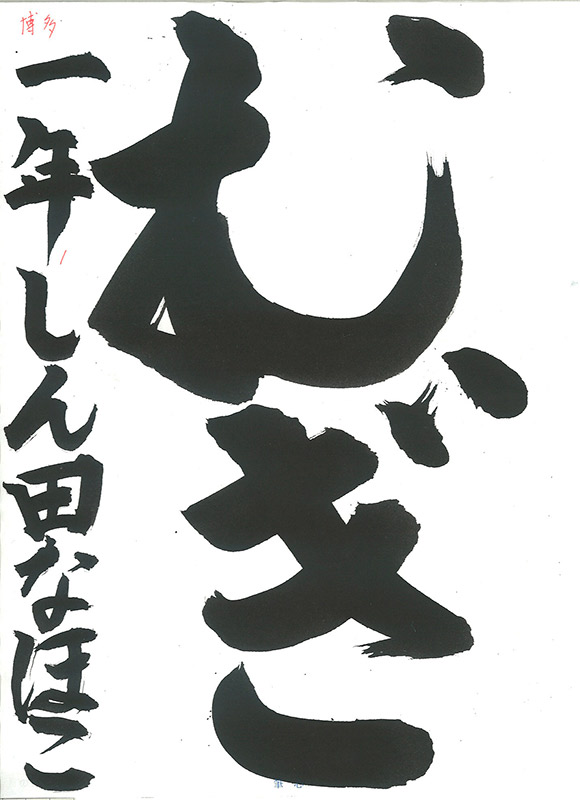 むぎ
一年しん田なほこ
博多